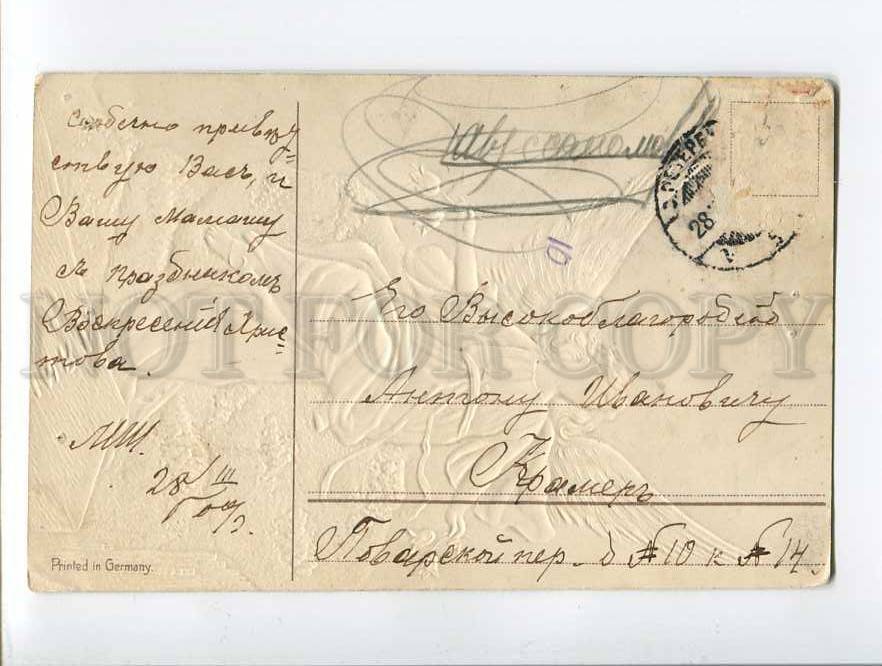 привѣт=
ствую Васъ, и
Вашу Мамашу
съ праздникомъ
Воскресенія Хрис=
това.
МШ.
28/III 09 г.
Printed in Germany.
28
Его Высокоблагородію
Антону Ивановичу
Крамеръ
Поварской пер. д № 10 к № 14.
NOT FOR COPY